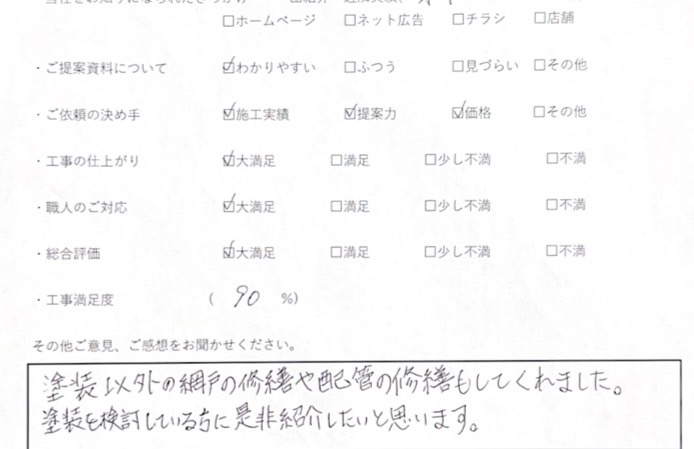 □ホームページ □ネット広告 □チラシ □店舗
・ご提案資料について ☑わかりやすい □ふつう □見づらい □その他
・ご依頼の決め手 ☑施工実績 ☑提案力 ☑価格 □その他
・工事の仕上がり ☑大満足 □満足 □少し不満 □不満
・職人のご対応 ☑大満足 □満足 □少し不満 □不満
・総合評価 ☑大満足 □満足 □少し不満 □不満
・工事満足度 ( 90 %)
その他ご意見、ご感想をお聞かせください。
塗装以外の網戸の修繕や配管の修繕もしてくれました。
塗装を検討している方に是非紹介したいと思います。